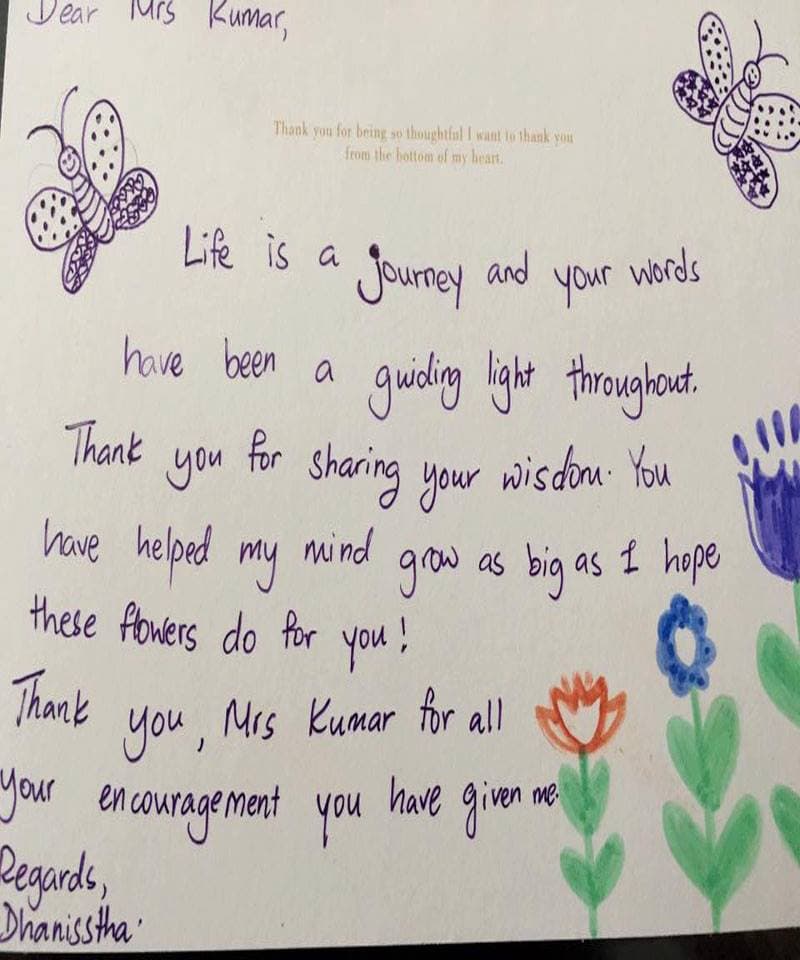 Dear Mrs Kumar,
Thank you for being so thoughtful I want to thank you
from the bottom of my heart.
Life is a journey and your words
have been a guiding light throughout.
Thank you for sharing your wisdom. You
have helped my mind grow as big as I hope
these flowers do for you!
Thank you, Mrs Kumar for all
your encouragement you have given me.
Regards,
Dhanisstha.